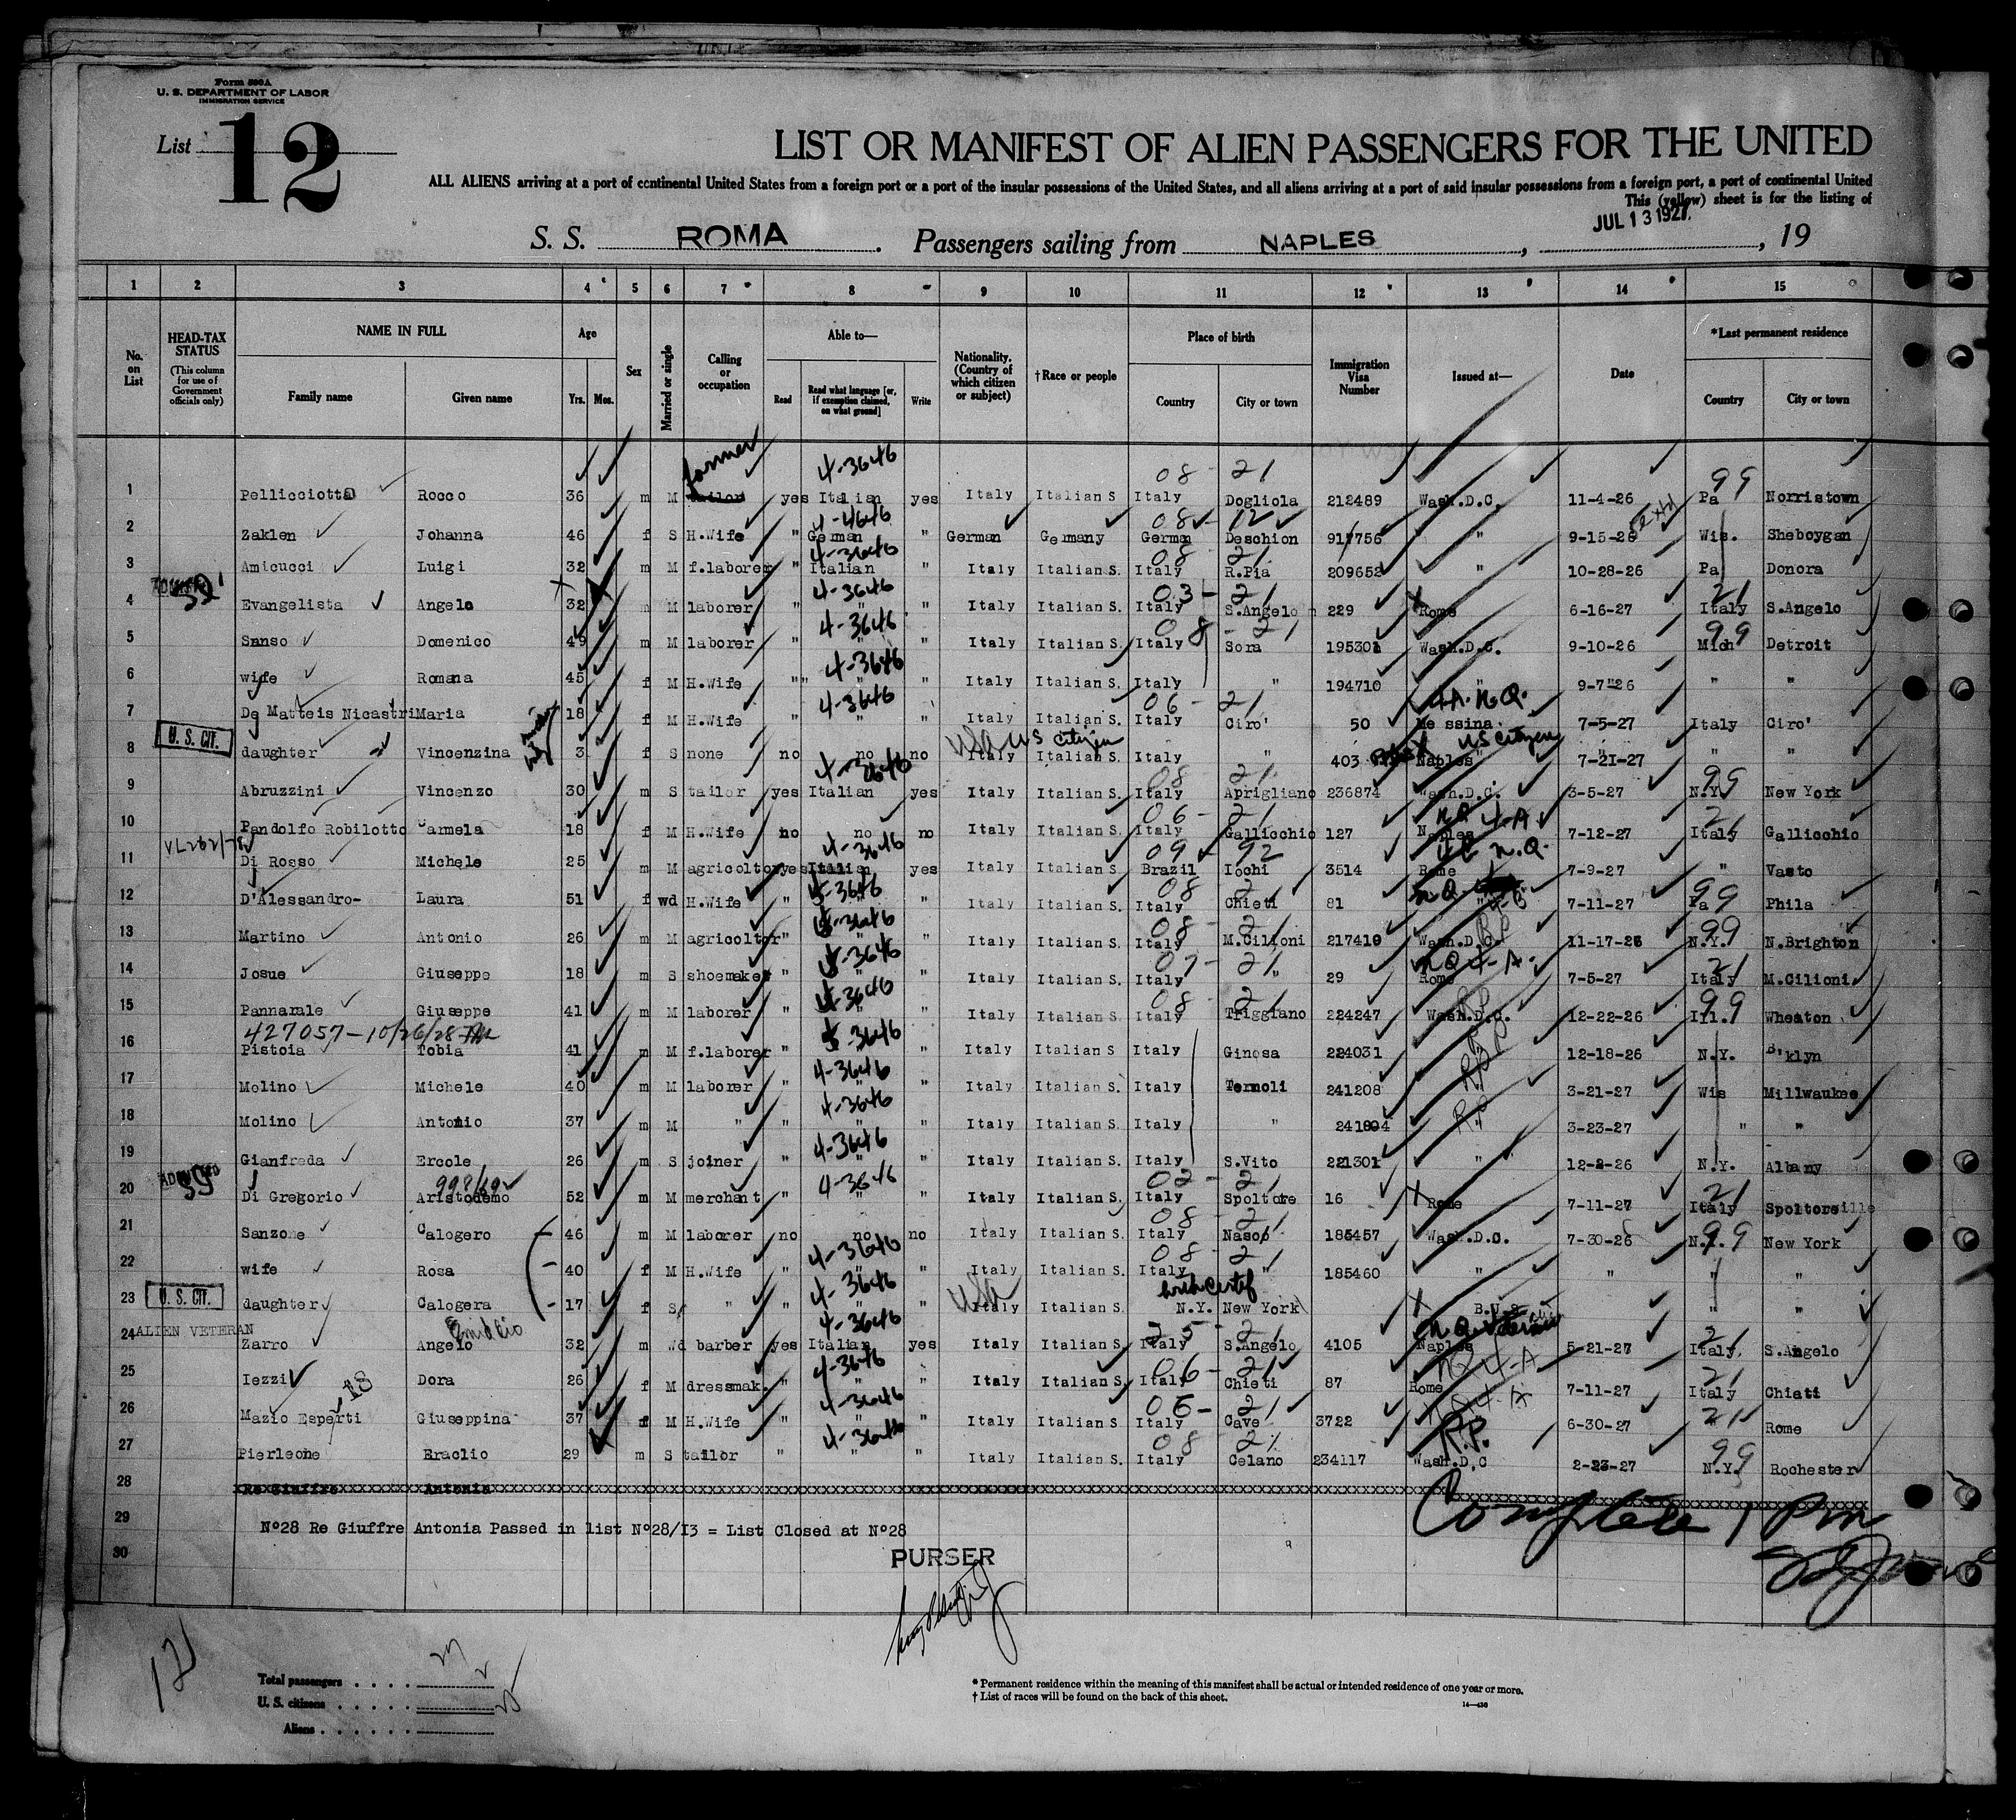 Form 500A
U. S. DEPARTMENT OF LABOR
IMMIGRATION SERVICE
List 12
LIST OR MANIFEST OF ALIEN PASSENGERS FOR THE UNITED
ALL ALIENS arriving at a port of continental United States from a foreign port or a port of the insular possessions of the United States, and all aliens arriving at a port of said insular possessions from a foreign port, a port of continental United
This (yellow) sheet is for the listing of
S. S. ROMA. Passengers sailing from NAPLES, JUL 13 1927, 19
1 2 3 4 5 6 7 8 9 10 11 12 13 14 15
No. on List HEAD-TAX STATUS (This column for use of Government officials only) NAME IN FULL Family name Given name Age Yrs. Mos. Sex Married or single Calling or occupation Able to— Read Read what language [or, if exemption claimed, on what ground] Write Nationality. (Country of which citizen or subject) †Race or people Place of birth Country City or town Immigration Visa Number Issued at— Date *Last permanent residence Country City or town
farmer 4-3646 08 - 21 99
1 Pellicciotta Rocco 36 m M tailor yes Italian yes Italy Italian S. Italy Dogliola 212489 Wash.D.C. 11-4-26 Pa Norristown
4-4646 08 - 12
2 Zaklen Johanna 46 f S H.Wife " German " German Germany German Deschion 917756 " 9-15-26 Wis. Sheboygan
4-3646 08 21
3 Amicucci Luigi 32 m M f.laborer " Italian " Italy Italian S. Italy R.Pia 209652 " 10-28-26 Pa Donora
4-3646 03 - 21 21
4 Evangelista Angelo 32 m M laborer " " " Italy Italian S. Italy S.Angelo 229 Rome 6-16-27 Italy S.Angelo
4-3646 08 - 21 99
5 Sanso Domenico 49 m M laborer " " " Italy Italian S. Italy Sora 195301 Wash.D.C. 9-10-26 Mich Detroit
4-3646
6 wife Romana 45 f M H.Wife " " " Italy Italian S. Italy " 194710 " 9-7-26 " "
4-3646 06 - 21 4A. N.Q.
7 De Matteis Nicastri Maria 18 f M H.Wife " " " Italy Italian S. Italy Ciro' 50 Messina 7-5-27 Italy Ciro'
U. S. CIT. USA US citizen US citizen
8 daughter Vincenzina 3 f S none no no no Italy Italian S. Italy " 403 Naples 7-21-27 " "
4-3646 08 21 99
9 Abruzzini Vincenzo 30 m S tailor yes Italian yes Italy Italian S. Italy Aprigliano 236874 Wash.D.C. 3-5-27 N.Y. New York
06 - 21 NQ 4-A 21
10 Pandolfo Robilotto Carmela 18 f M H.Wife no no no Italy Italian S. Italy Gallicchio 127 Naples 7-12-27 Italy Gallicchio
4-3646 09 92 N.Q.
11 Di Rosso Michele 25 m M agricoltor yes Italian yes Italy Italian S. Brazil Iochi 3514 Rome 7-9-27 " Vasto
4-3646 08 21 N.Q. 99
12 D'Alessandro- Laura 51 f wd H.Wife " " " Italy Italian S. Italy Chieti 81 " 7-11-27 Pa Phila
4-3646 08 - 21 99
13 Martino Antonio 26 m M agricoltor " " " Italy Italian S. Italy M.Cilioni 217410 Wash.D.C. 11-17-26 N.Y. N.Brighton
4-3646 07 - 21 NQ 4-A. 21
14 Josue Giuseppe 18 m S shoemaker " " " Italy Italian S. Italy " 29 Rome 7-5-27 Italy M.Cilioni
4-3646 08 - 21 RP 99
15 Pannarale Giuseppe 41 m M laborer " " " Italy Italian S. Italy Triggiano 224247 Wash.D.C. 12-22-26 Ill. Wheaton
427057-10/26/28 4-3646 RP
16 Pistoia Tobia 41 m M f.laborer " " " Italy Italian S Italy Ginosa 224031 " 12-18-26 N.Y. B'klyn
4-3646 RP
17 Molino Michele 40 m M laborer " " " Italy Italian S. Italy Termoli 241208 3-21-27 Wis Millwaukee
4-3646 RP
18 Molino Antonio 37 m M " " " " Italy Italian S. Italy " 241894 " 3-23-27 " "
4-3646
19 Gianfreda Ercole 26 m S joiner " " " Italy Italian S. Italy S.Vito 221301 " 12-2-26 N.Y. Albany
4-3646 02 - 21 21
20 Di Gregorio Aristodemo 52 m M merchant " " Italy Italian S. Italy Spoltore 16 Rome 7-11-27 Italy Spoltoreille
08 - 21 99
21 Sanzone Calogero 46 m M laborer no no no Italy Italian S. Italy Nasop 185457 Wash.D.C. 7-30-26 N.Y. New York
4-3646 08 - 21
22 wife Rosa 40 f M H.Wife " " " Italy Italian S. Italy " 185460 " " " "
U. S. CIT. 4-3646 USA birth certif
23 daughter Calogera 17 f S " " " " Italy Italian S N.Y. New York " "
ALIEN VETERAN Emidio 4-3646 25 - 21 21
24 Zarro Angelo 32 m Wd barber yes Italian yes Italy Italian S. Italy S.Angelo 4105 Naples 5-21-27 Italy. S.Angelo
4-3646 06 - 21 NQ 4-A 21
25 Iezzi Dora 26 f M dressmak. " " " Italy Italian S. Italy Chieti 87 Rome 7-11-27 Italy Chieti
4-3646 06 - 21 21
26 Mazio Esperti Giuseppina 37 f M H.Wife " " " Italy Italian S. Italy Cave 3722 6-30-27 Rome
4-3646 08 21 R.P. 99
27 Pierleone Eraclio 29 m S tailor " " " Italy Italian S. Italy Celano 234117 Wash.D.C 2-23-27 N.Y. Rochester
28 Re Giuffre Antonia
29 Nº28 Re Giuffre Antonia Passed in list Nº28/I3 = List Closed at Nº28 Complete
30
PURSER
121
Total passengers
U. S. citizens
Aliens
* Permanent residence within the meaning of this manifest shall be actual or intended residence of one year or more.
† List of races will be found on the back of this sheet.
14—430